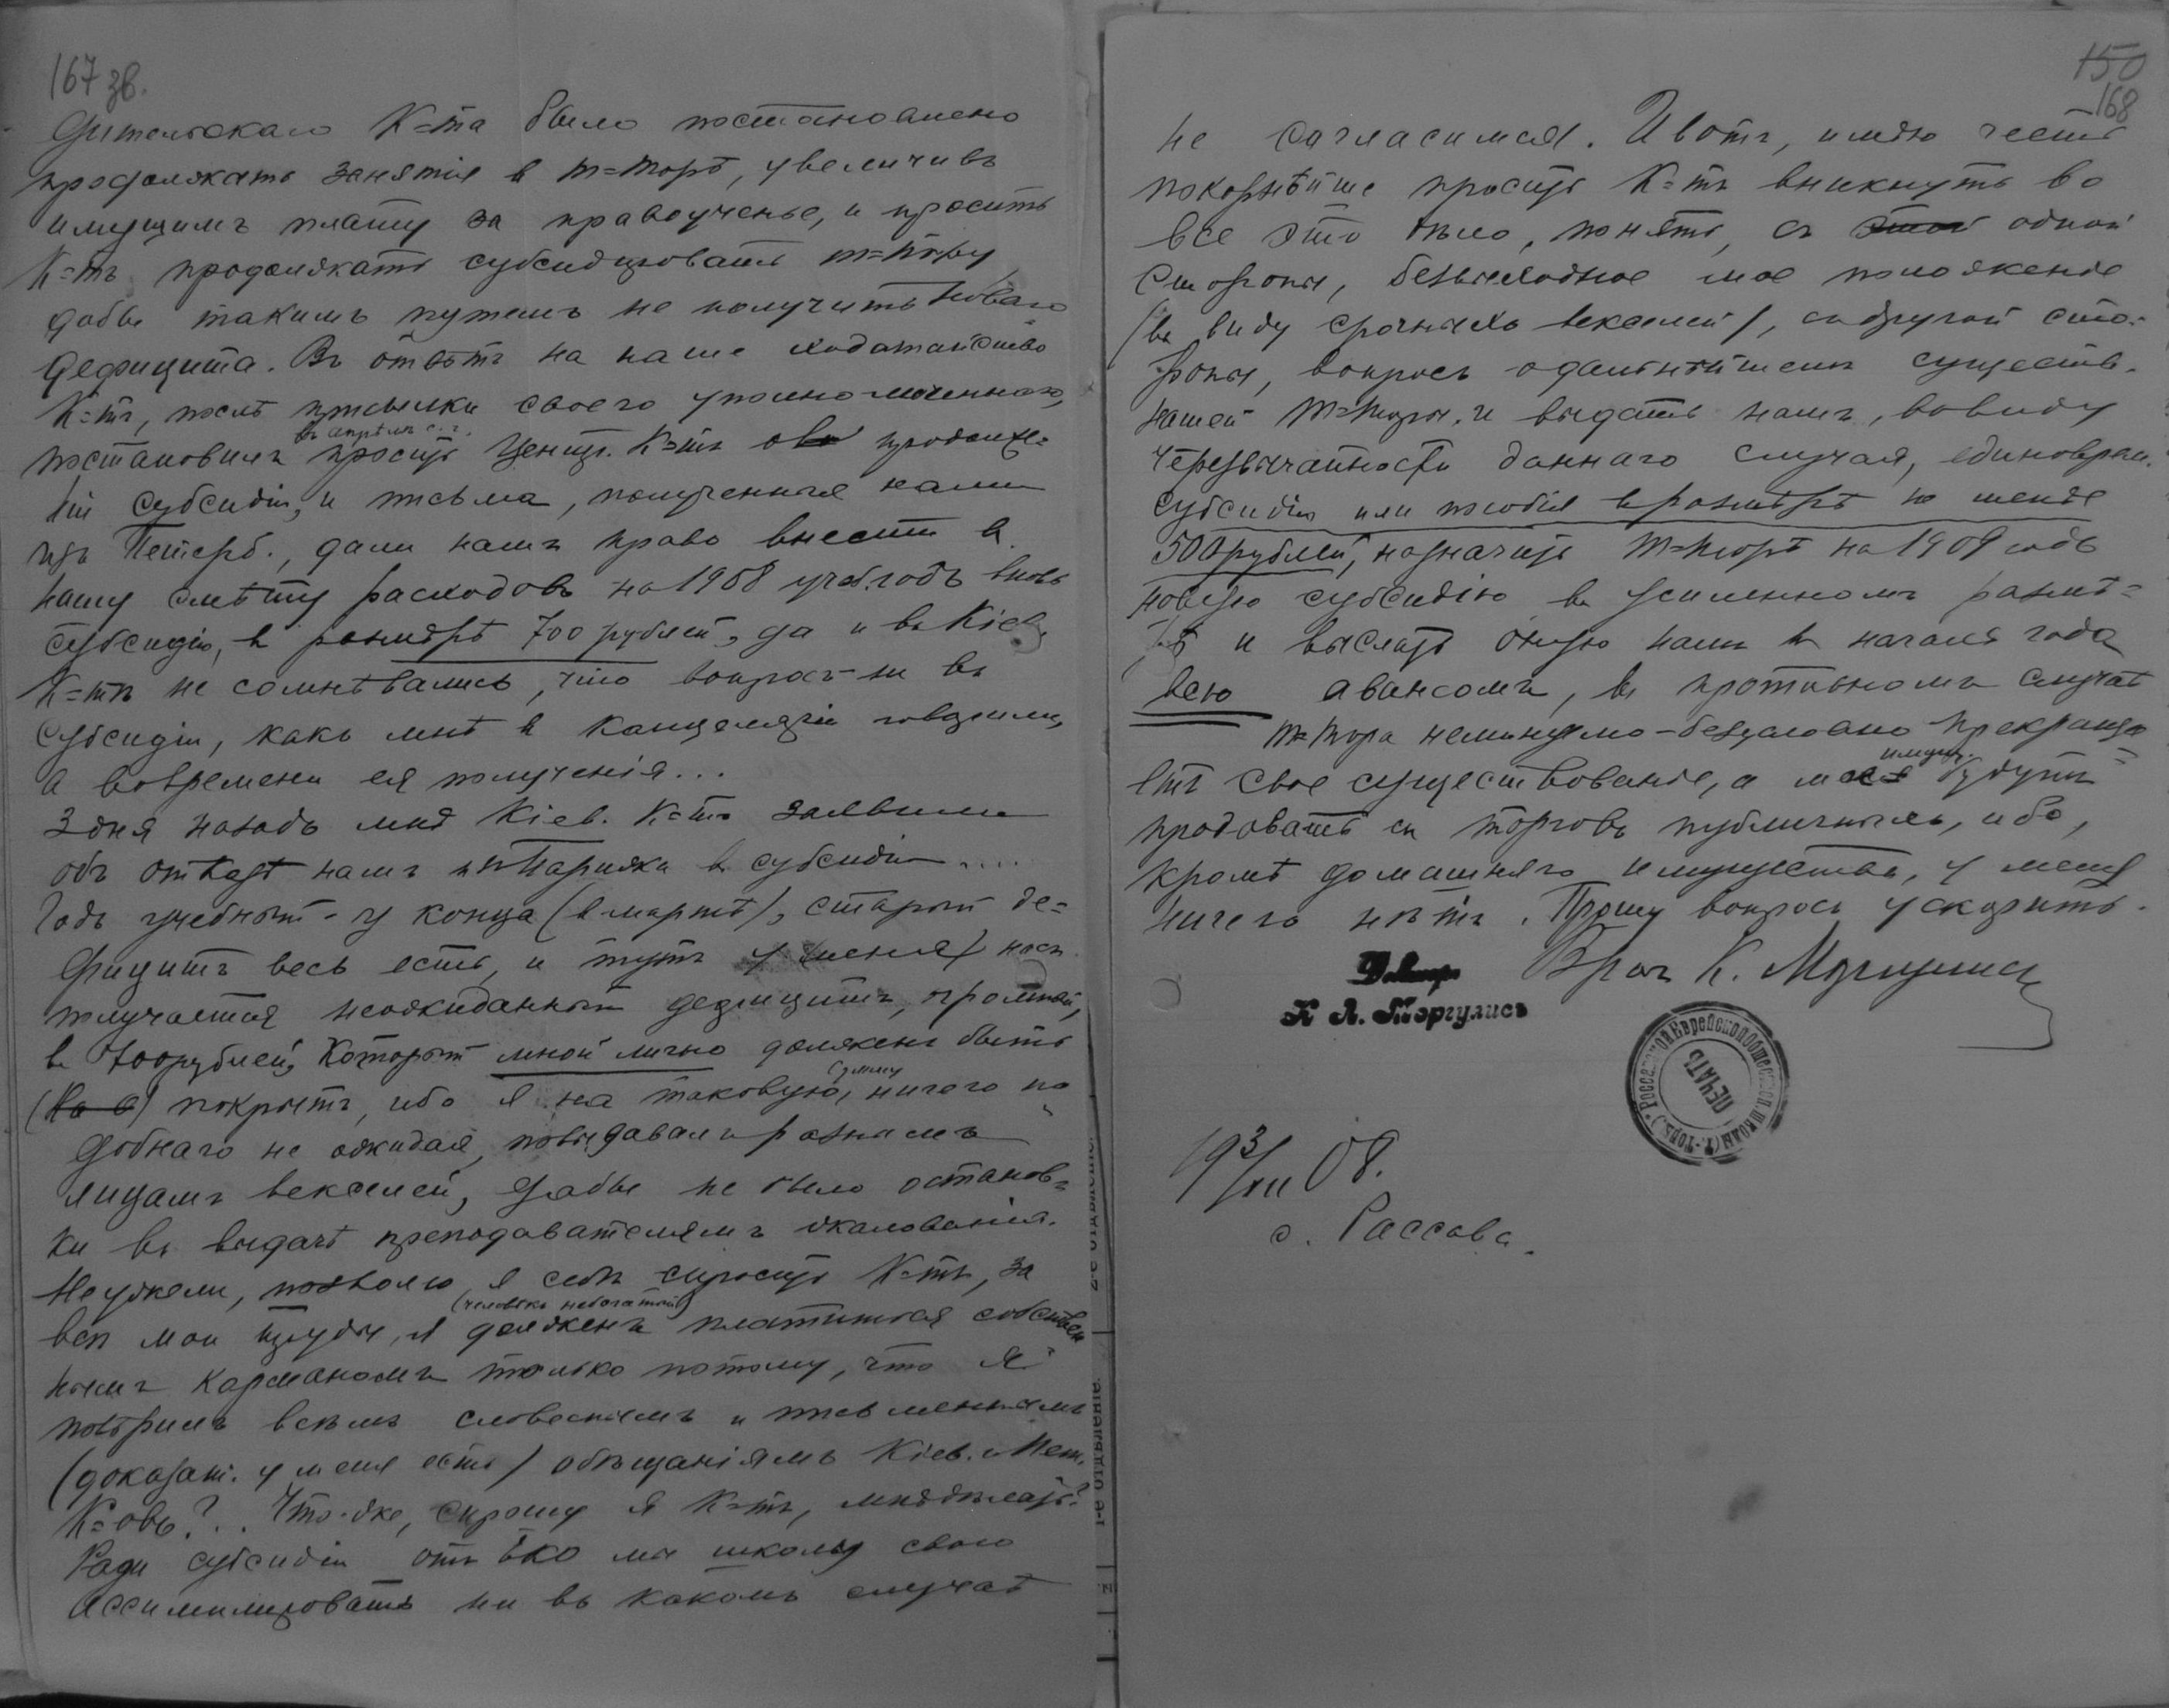 167 зв.
дительскаго К=та было постановлено
продолжать занятія в Т=Торѣ, увеличивъ
имущимъ плату за правоученье, и просить
К=тъ продолжать субсидировать т=тору,
дабы такимъ путемъ не получить новаго
дефицита. Въ отвѣтъ на наше ходатайство
К=тъ, послѣ присылки своего уполномоченнаго,
въ апрѣлѣ с.г.
постановилъ просить Центр. К=тъ о продолже=
ніи субсидіи, и письма, полученныя нами
изъ Петерб., дали намъ право внести в
нашу смѣту расходовъ на 1908 учеб. годъ вновь
субсидію, в размѣрѣ 700 рублей, да и въ Кіев.
К=тѣ не сомнѣвались, что вопросъ-не въ
субсидіи, какъ мнѣ в канцеляріи говорили,
а во времени ея полученія...
3 дня назадъ мнѣ Кіев. К=тъ заявили
объ отказѣ намъ изъ Парижа в субсидіи....
Годъ учебный-у конца (в мартѣ), старый де=
фицитъ весь есть, и тутъ у (меня) насъ
получается неожиданный дефицитъ, громный,
в 700 рублей, который мной лично долженъ быть
покрытъ, ибо я на таковую сумму, ничего по=
добнаго не ожидая, повыдавалъ разнымъ
лицамъ векселей, дабы не было останов=
ки въ выдачѣ преподавателямъ жалованія.
Неужели, позволю я себѣ спросить К=тъ, за
(человѣкъ небогатый)
всѣ мои труды, я долженъ платиться собствен
нымъ карманомъ только потому, что я
повѣрилъ всѣмъ словеснымъ и письменнымъ
(доказат. у меня есть) обѣщаніямъ Кіев. и Пет.
К=овъ?.. Что-же, спрошу я К=тъ, мнѣ дѣлать?
Ради субсидіи отъ ЕКО мы школы свою
ассимилировать ни въ какомъ случаѣ
150
168
не согласимся. И вотъ, имѣю честь
покорнѣйше просить К=тъ вникнуть во
все это дѣло, понять, съ одной
стороны, безвыходное мое положеніе
(въ виду срочныхъ векселей), съ другой сто=
роны, вопросъ о дальнѣйшемъ существ.
нашей Т=Торы, и выдать намъ, ввиду
черезвычайности даннаго случая, единоврем.
субсидію или пособія в размѣрѣ не менѣе
500 рублей, назначить Т=Торѣ на 1909 годъ
новую субсидію въ усиленномъ размѣ=
рѣ и выслать оную намъ въ началѣ года
всю авансомъ, въ противномъ случаѣ
Т=Тора неминуемо-безусловно прекраща=
етъ свое существованіе, а мое имущ. будутъ
продавать съ торговъ публичныхъ, ибо,
кромѣ домашняго имущества, у меня
ничего нѣтъ. Прошу вопросъ ускорить.
Врач К. Маргулисъ
Докторъ
К. Л. Маргулисъ
Россавской Еврейской Обществен. школы (Т.-Торы)
ПЕЧАТЬ
19 3/XII 08.
с. Россава.
2-е отдѣленіе.
1-е отдѣленіе.